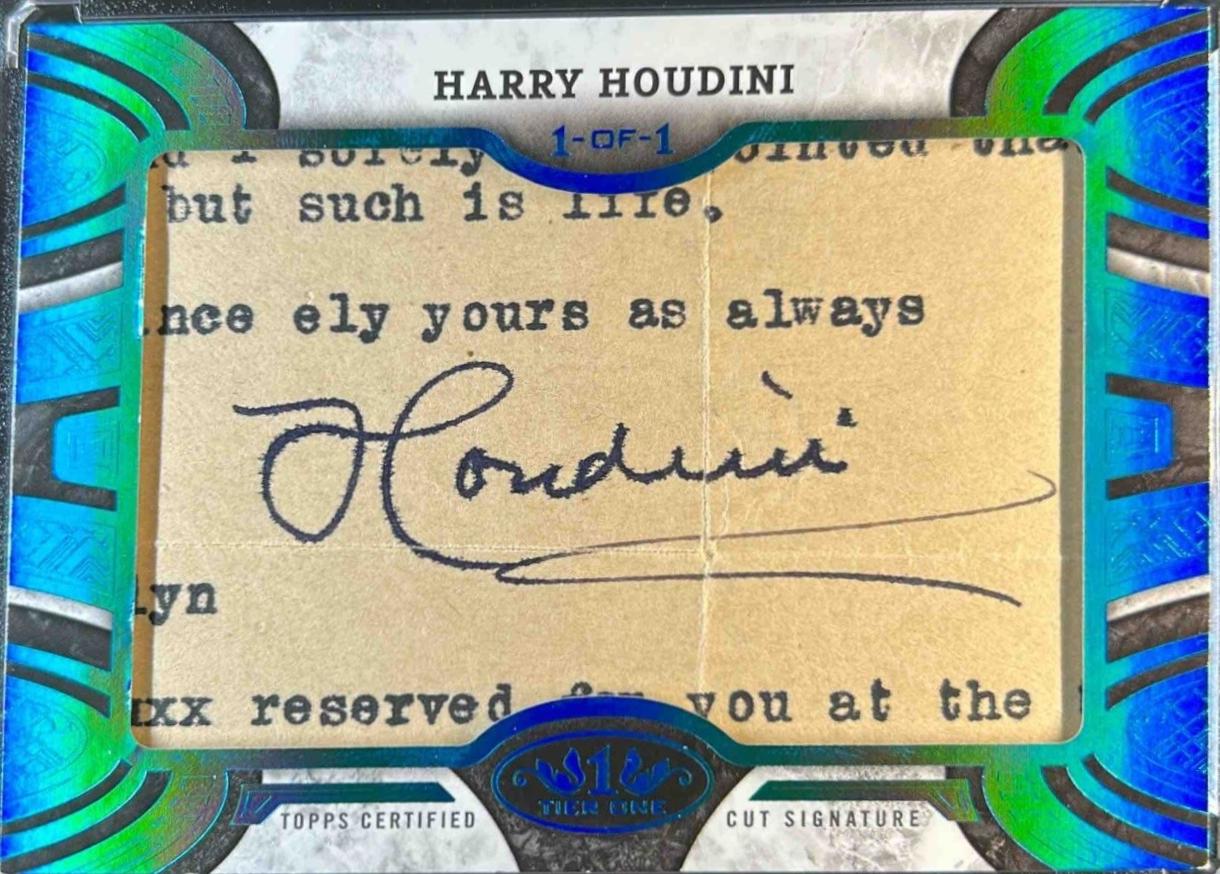 HARRY HOUDINI
1-OF-1
I solely
but such is life,
nce ely yours as always
Houdini
lyn
xx reserved for you at the
1
TIER ONE
TOPPS CERTIFIED CUT SIGNATURE